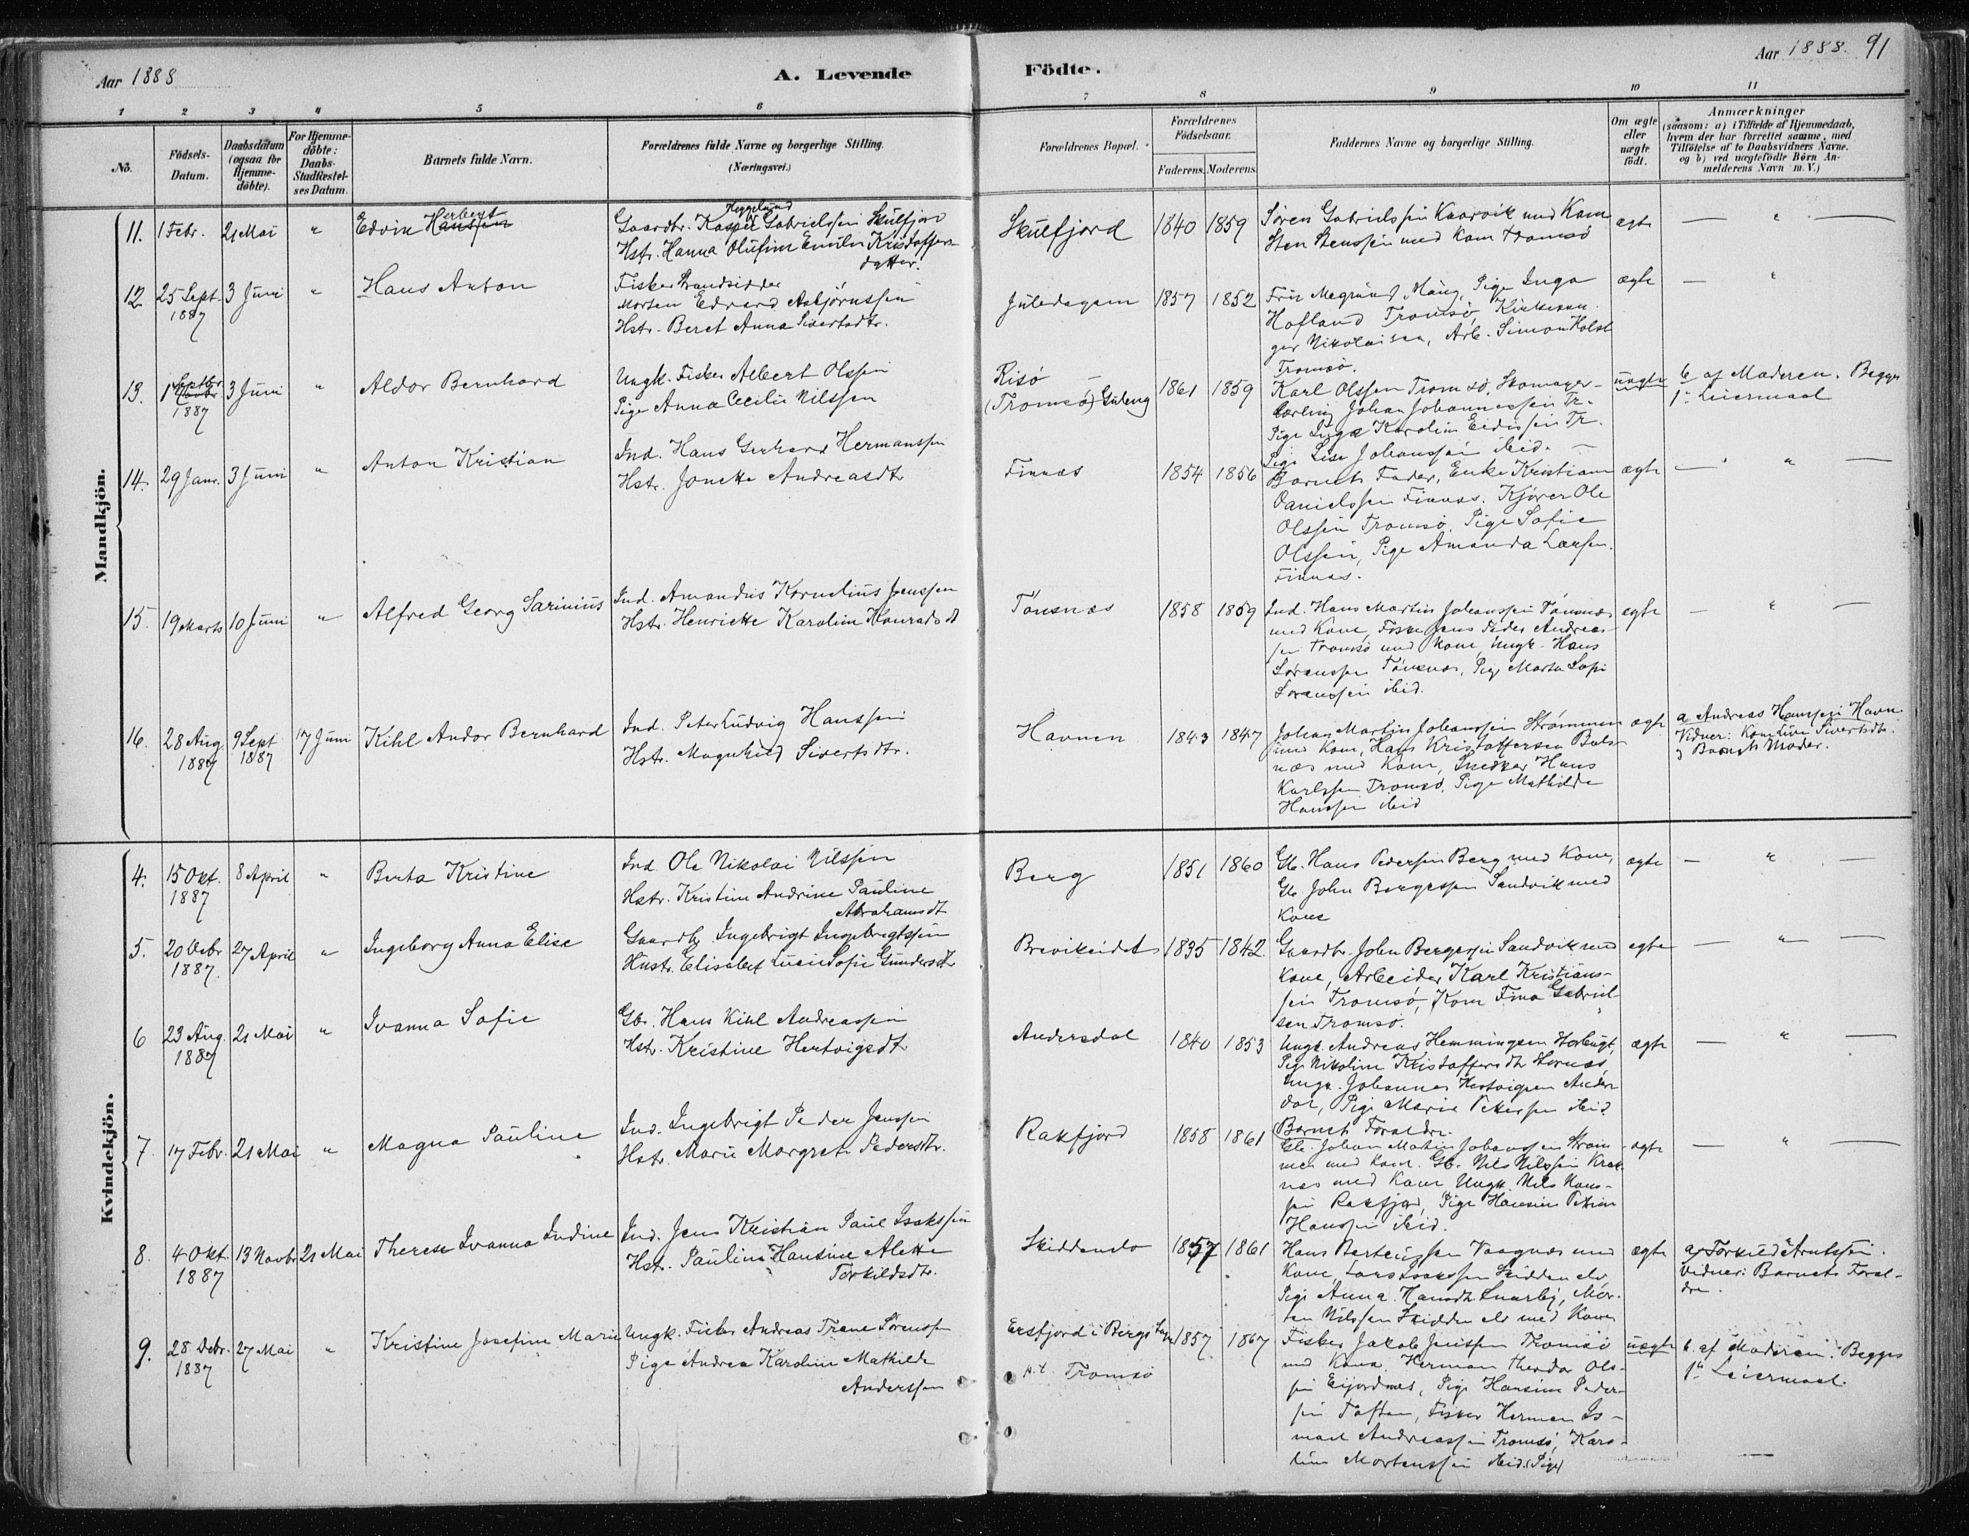 Aar 1888
A. Levende
Födte.
Aar 1888. 91
1 2 3 4 5 6 7 8 9 10 11
No.
Födsels-
Datum.
Daabsdatum
(ogsaa for
Hjemme-
döbte).
For Hjemme-
döbte:
Daabs-
Stadfæstel-
ses Datum.
Barnets fulde Navn.
Forældrenes fulde Navne og borgerlige Stilling.
(Næringsvei.)
Forældrenes Bopæl.
Forældrenes
Födselsaar.
Faderens. Moderens.
Faddernes Navne og borgerlige Stilling.
Om ægte
eller
uægte
födt.
Anmærkninger
(saasom: a) i Tilfælde af Hjemmedaab,
hvem der har forrettet samme, med
Tilföielse af to Daabsvidners Navne.
og b) ved uægtefödte Börn An-
melderens Navn m. V.)
Mandkjön.
11. 1 Febr. 21 Mai " Edvin Herbert Hanssen
Gaardbr. Kasper Gabrielssen Skulfjord
Hstr. Hanna Olufine Emilie Kristoffers-
datter.
Skulfjord 1840 1859
Søren Gabrielssen Kaarvik med Kone
Sten Stenssen med Kone Tromsø
ægte — " —
12 25 Sept. 1887 3 Juni " Hans Anton
Fisker Strandsidder
Morten Edvard Asbjørnssen
Hstr. Beret Anna Sivertsdtr.
Juledagsm 1857 1852
Pige Inga
Hofland Tromsø
Nikolaisen, Arb. Simon Holst
Tromsø.
ægte — "
13. 1 Septbr 1887 3 Juni " Aldor Bernhard
Ungk. Fisker Albert Olssen
Pige Anna Cecilie Nilssen
Risö
(Tromsø) 1861 1859
Karl Olssen Tromsø, Skomager-
lærling Johan Johannessen Tr.
Pige Inga Karoline Tr.
Pige Lise Johanssen ibid.
uægte b. af Moderen. Begges
1ste Leiermaal
14. 29 Janr. 3 Juni " Anton Kristian
Ind. Hans Gerhard Hermanssen
Hstr. Jonette Andreasdtr
Finnæs 1854 1856
Barnets Fader, Enke Kristiane
Danielssen Finnæs. Kjører Ole
Olssen Tromsø, Pige Sofie
Olssen, Pige Amanda Larsen
Finnæs.
ægte — " —
15. 19 Marts 10 Juni " Alfred Georg Sarinius
Ind. Amandus Kornelius Jenssen
Hstr. Henriette Karoline Konradsdt
Tønsnæs 1858 1859
Ind. Hans Martin Johanssen Tønsnæs
med Kone, Jens Peder Andreas-
sen Tromsø med Kone, Ungk. Hans
Sørenssen Tønsnæs, Pige Marta Sofie
Sørenssen ibid.
ægte — " —
16. 28 Aug 1887 9 Sept 1887 17 Juni Kihl Andor Bernhard
Ind. Peter Ludvig Hanssen
Hstr. Magnhild Sivertsdtr.
Havnen 1843 1847
Johan Martin Johanssen Strømmen
med Kone, Hans Kristoffersen Bals-
næs med Kone, Snedker Hans
Karlssen Tromsø, Pige Mathilde
Hanssen ibid
ægte
a. Andreas Hanssen Havn.
Vidner: Kone Live Sivertsdtr.
og Barnets Moder.
Kvindekjön.
4. 15 Okt. 1887 8 April " Berta Kristine
Ind. Ole Nikolai Nilssen
Hstr. Kristine Andrine Pauline
Abrahamsdt
Berg 1851 1860
Gb. Hans Pederssen Berg med Kone,
Gb. John Bergessen Sandvik med
Kone
ægte — " —
5. 20 Debr 1887. 27 April " Ingeborg Anna Elise
Gaardb. Ingebrigt Ingebrigtssen
Hustr. Elisabet Lucie Sofie Gundersdtr
Brevikeidet 1835 1842.
Gaardbr. John Bergessen Sandvik med
Kone, Arbeider Karl Kristians-
sen Tromsø, Kone Fina Gabriel-
sen Tromsø.
ægte — " —
6 23 Aug. 1887 21 Mai " Ivanna Sofie
Gbr. Hans Kihl Andreassen
Hstr. Kristine Hertvigsdtr
Andersdal 1840 1853
Ungk. Andreas Hemmingsen
Pige Nikoline Kristoffersdt
Ungk. Johannes Hertvigsen Anders-
dal, Pige Marie Pettersen ibid
ægte — " —
7. 17 Febr. 21 Mai " Magna Pauline
Ind. Ingebrigt Peder Jenssen
Hstr. Marie Margret Pedersdtr.
Rakfjord 1858 1861
Barnets Forældre.
Gb. Johan Martin Johanssen Strøm-
men med Kone. Gb. Nils Nilssen Krak-
næs med Kone Ungk. Nils Hans-
sen Rakfjord, Pige Hansine Petrine
Hanssen ibid.
ægte — " —
8. 4 Okt. 1887 13 Novbr 21 Mai Therese Ivanna Indine
Ind. Jens Kristian Paul Isakssen
Hstr. Pauline Hansine Alette
Torkildsdtr.
Skiddenelv 1857 1861
Hans Vaagnæs med
Kone, Lars Isakssen Skiddenelv,
Pige Anna Hansdt. Snarby, Mor-
ten Nilssen Skiddenelv med Kone
ægte
a. Torkild Arntssen.
Vidner: Barnets Foræl-
dre.
9. 28 Debr. 1887 27 Mai " Kristine Josefine Marie
Ungk. Fisker Andreas Trane Sørenssen
Pige Andrea Karoline Mathilde
Anderssen
Ersfjord i Bergs Sogn
p.t. Tromsø
1857. 1867
Fisker Jakob Jenssen Tromsø
med Kone, Herman Theodor Ols-
sen Eijordnæs, Pige Hansine Peder-
sen Toften, Fisker Herman Is-
mael Andreassen Tromsø, Karo-
line Mortenssen ibid. (Pige)
uægte
b. af Moderen. Begges
1ste Leiermaal.